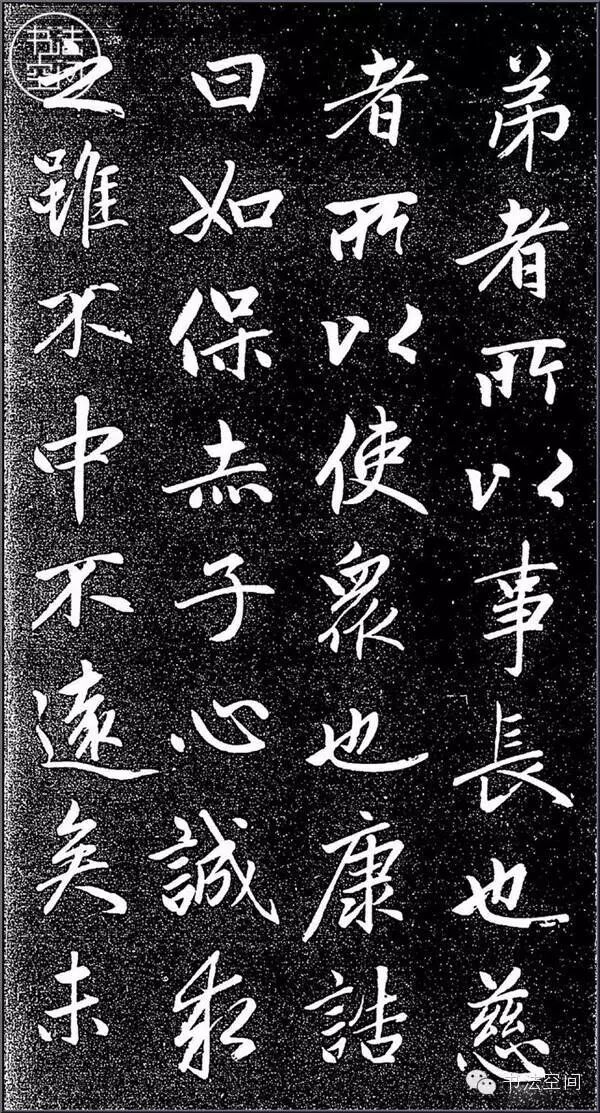 弟者所以事長也慈
者所以使眾也康誥
曰如保赤子心誠求
之雖不中不遠矣未
书法空间
书法空间